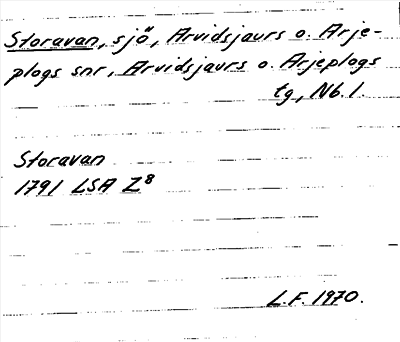 Storavan, sjö, Arvidsjaurs o. Arje-
plogs snr, Arvidsjaurs o. Arjeplogs
tg, Nb.l.
Storavan
1791 LSA Z⁸
L.F. 1970.